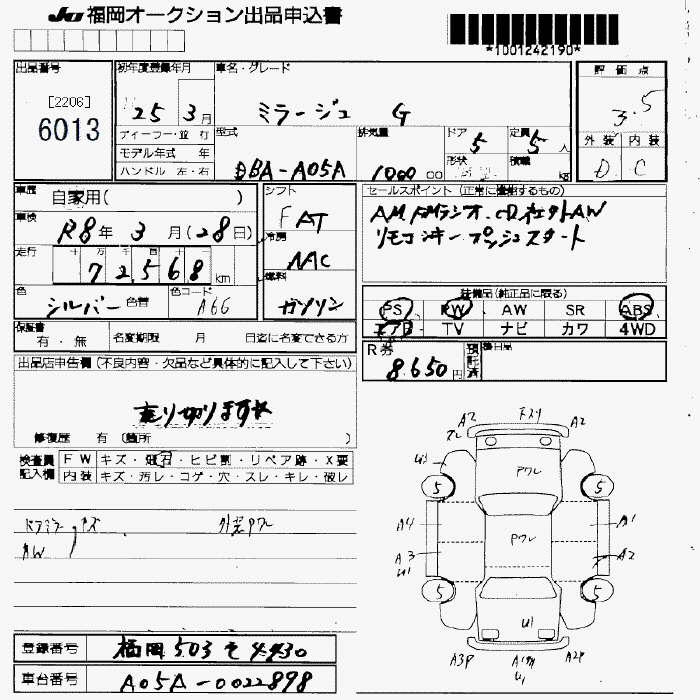 JU 福岡オークション出品申込書
*1001242190*
出品番号
[2206]
6013
初年度登録年月
25 3月
ディーラー・並行
モデル年式 年
ハンドル 左・右
車名・グレード
ミラージュ G
型式
DBA-A05A
排気量
1000 cc
ドア
5
形状
定員
5人
積載
kg
評価点
3.5
外装 内装
D C
車歴
自家用( )
車検
R8年 3月(28日)
走行
十万千百十
72568km
色
シルバー 色替
色コード
A66
シフト
FAT
冷房
AAC
燃料
ガソリン
セールスポイント(正常に機能するもの)
AM FMラジオ.CD.社外AW
リモコンキー プッシュスタート
装備品(純正品に限る)
PS PW AW SR ABS
エアB TV ナビ カワ 4WD
保証書
有・無
名変期限 月 日迄に名変できる方
R券
8,650円
預託済
後日品
出品店申告欄(不良内容・欠品など具体的に記入して下さい)
売り切ります
修復歴 有(箇所 )
検査員記入欄
FW キズ・飛石・ヒビ割・リペア跡・X要
内装 キズ・汚レ・コゲ・穴・スレ・キレ・破レ
ドアミラー キズ 外装クワレ
AW
A2 A2
U3
クワレ
5 5
A4 A1
クワレ
A3 A2
U1
5 5
U1
A3P A2P
U1
登録番号
福岡 503 そ 4430
車台番号
A05A-0022898